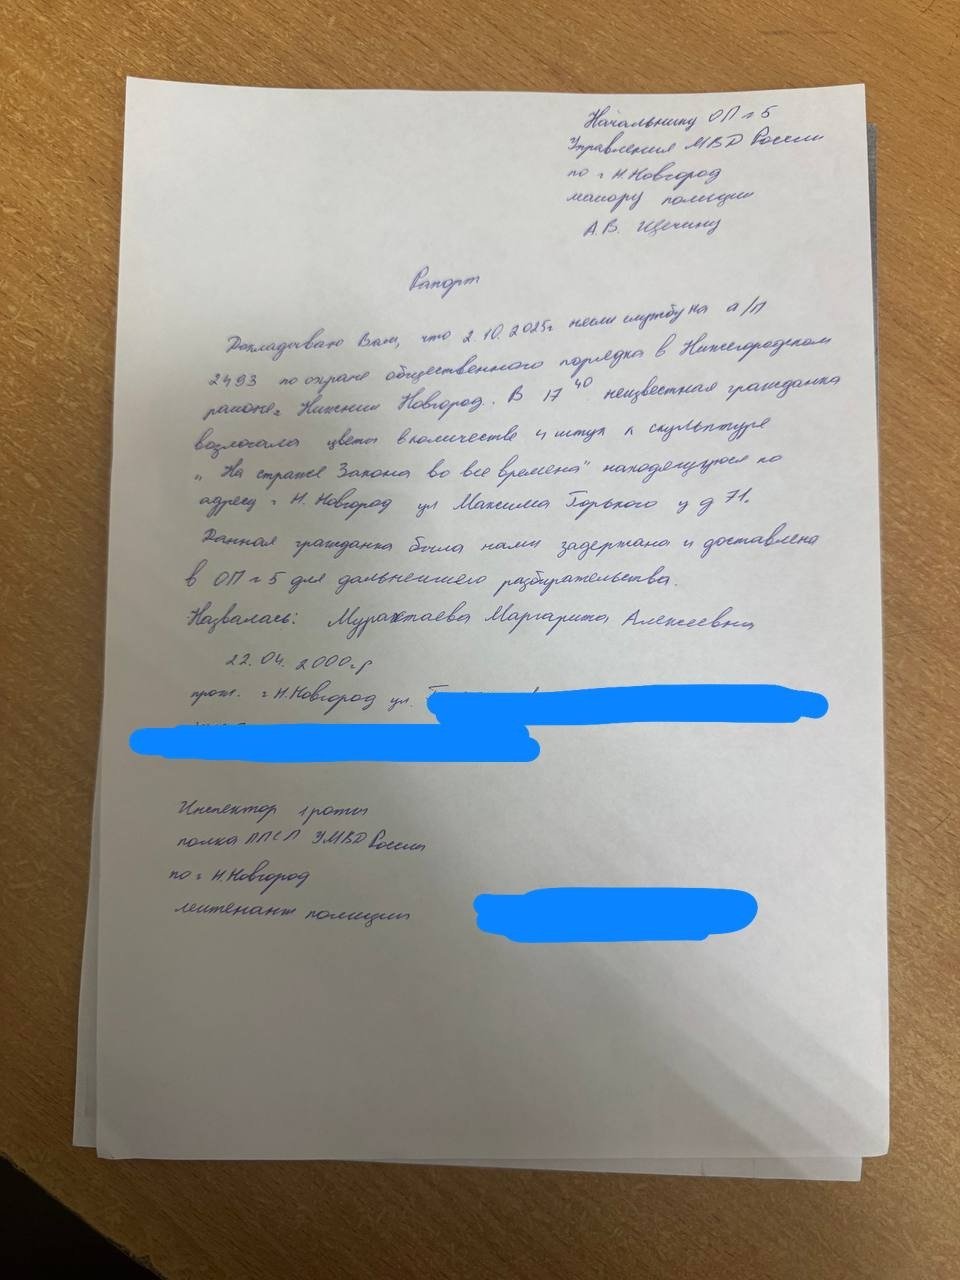 Начальнику ОП №5
Управления МВД России
по г Н.Новгород
майору полиции
А.В. Щечину
Рапорт
Докладываю Вам, что 2.10.2025г несли службу на а/п
2493 по охране общественного порядка в Нижегородском
районе г Нижний Новгород. В 17 40 неизвестная гражданка
возлагала цветы в количестве 4 штук к скульптуре
"На страже Закона во все времена" находящуюся по
адресу г Н.Новгород ул Максима Горького у д 71.
Данная гражданка была нами задержана и доставлена
в ОП №5 для дальнейшего разбирательства.
Назвалась: Мурахтаева Маргарита Алексеевна
22.04.2000г.р
прож. г Н.Новгород ул.
Инспектор 1 роты
полка ППСП УМВД России
по г Н.Новгород
лейтенант полиции